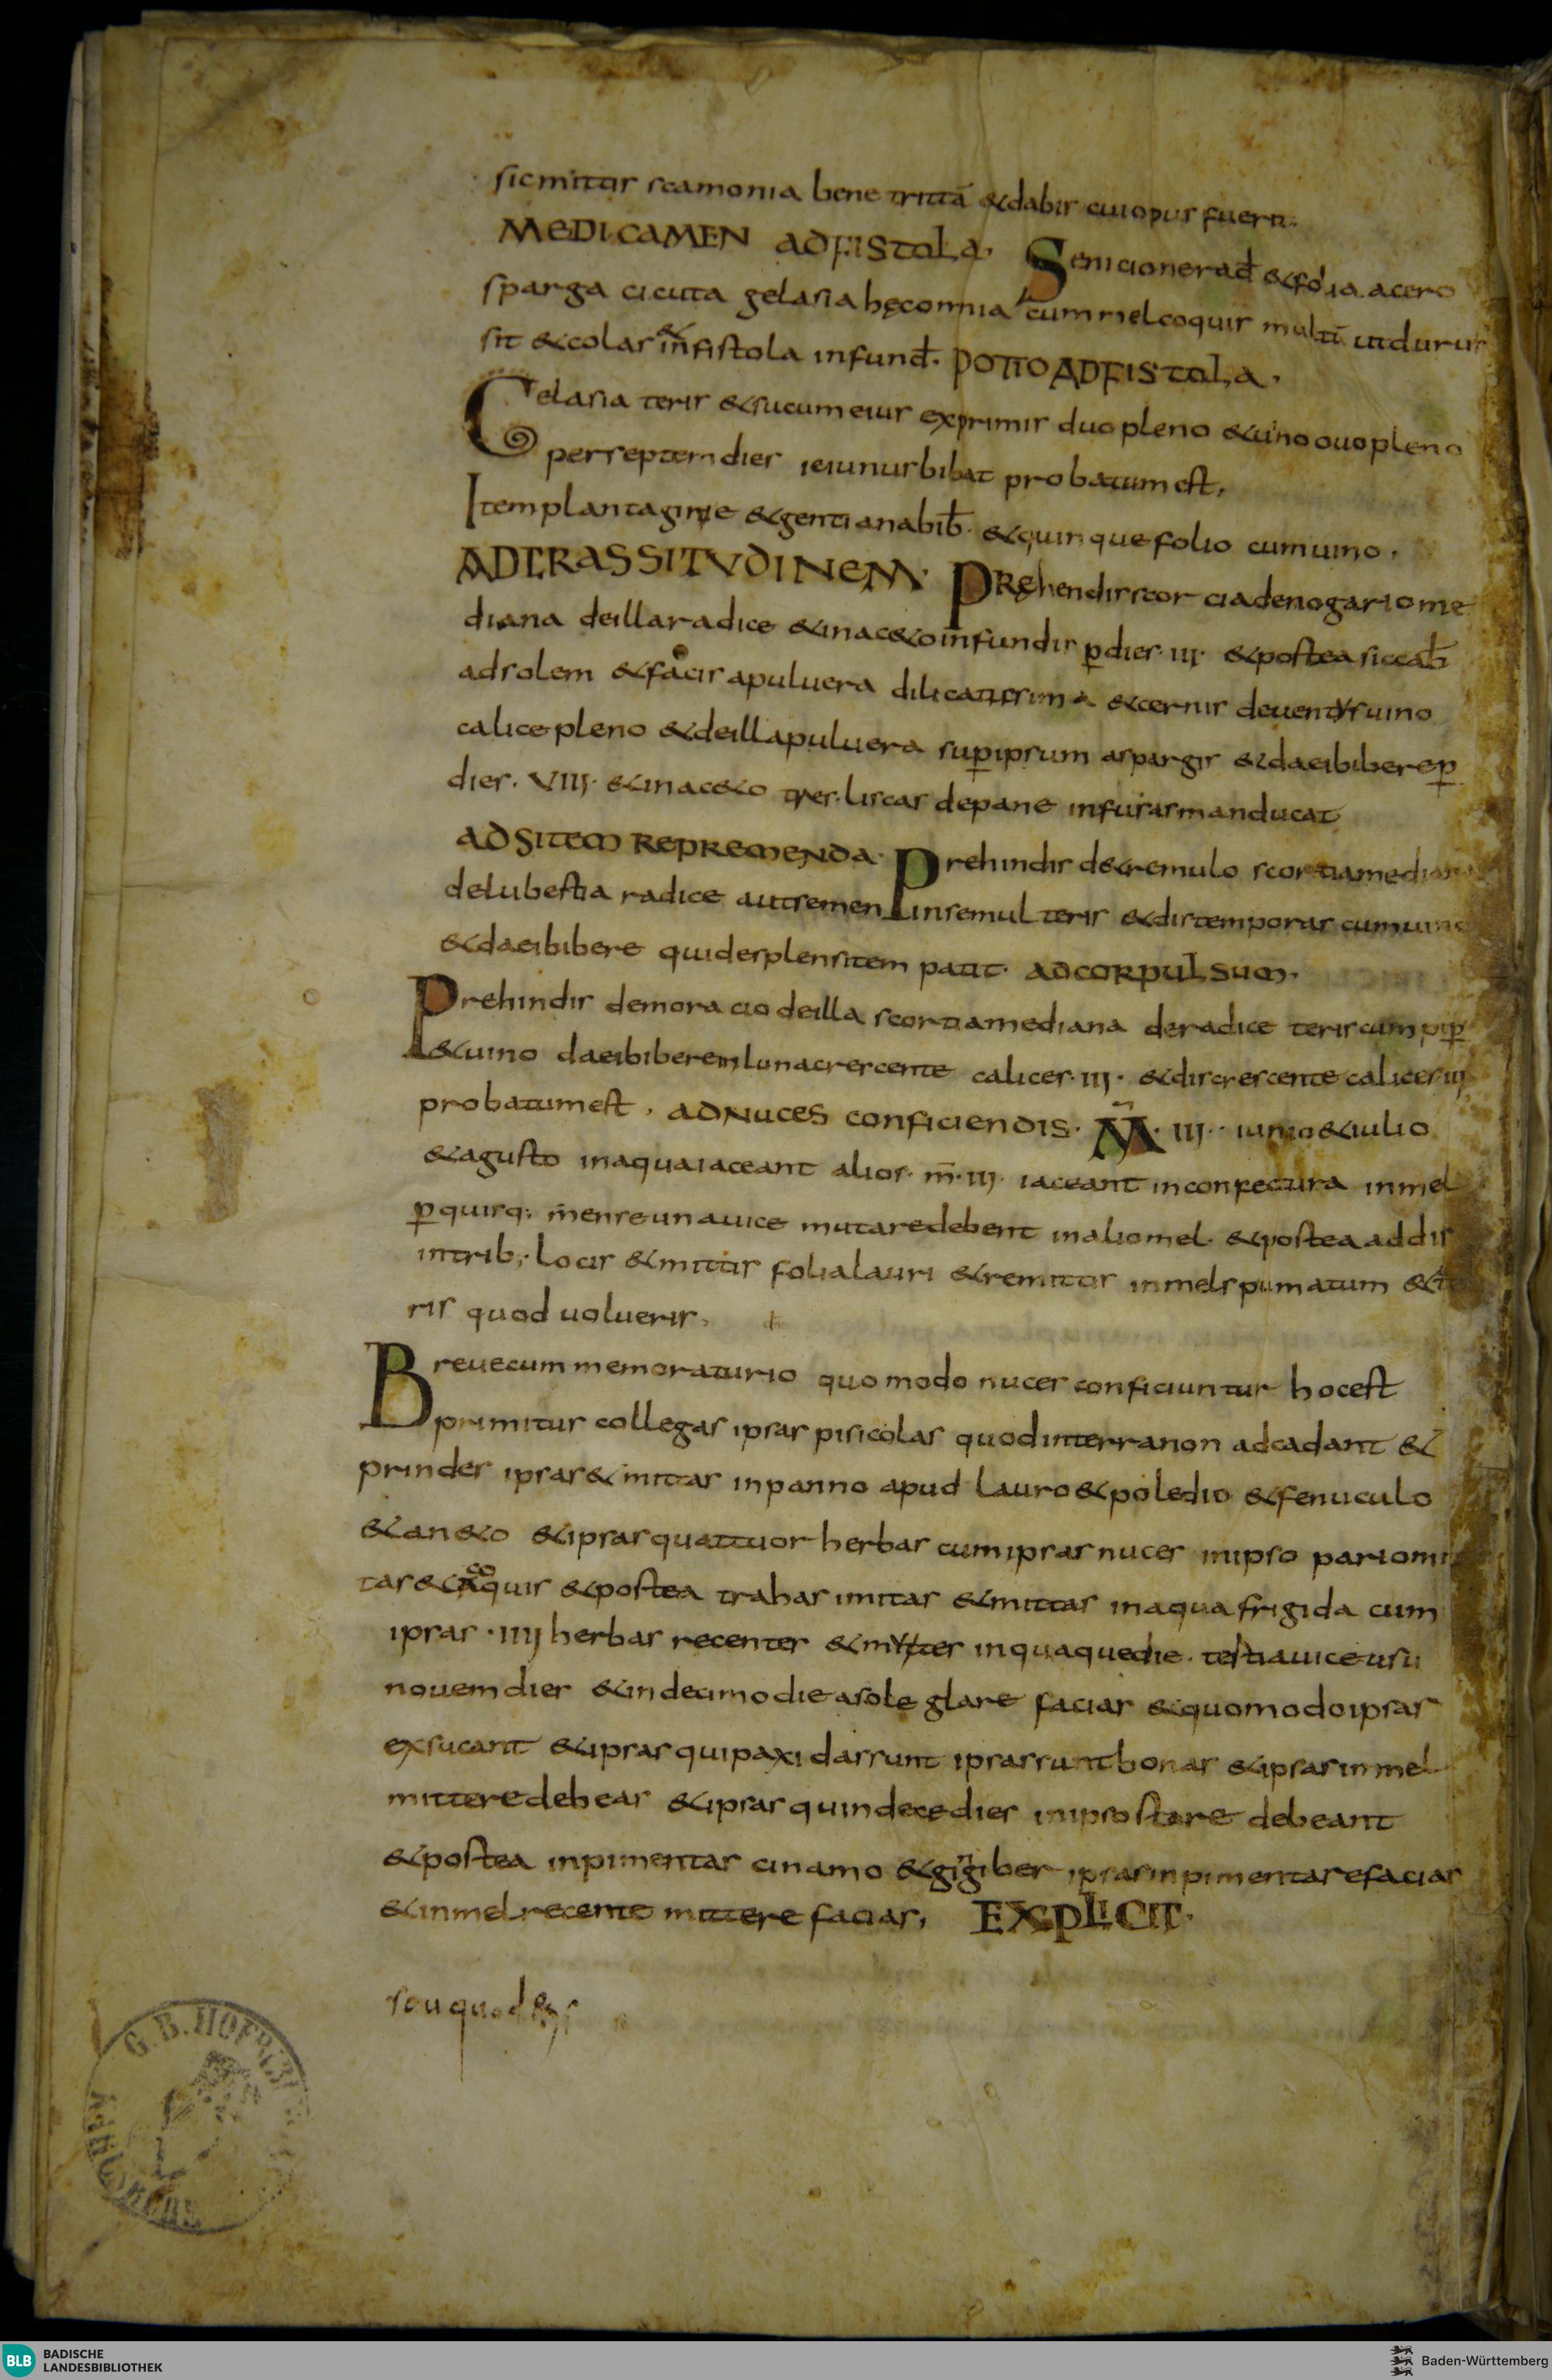 sic mittis scamonia bene trittā & dabis cui opus fuerit.
MEDICAMEN AD FISTOLA. Senicione rad & folia acero
sparga cicuta gelasia hęc omnia cum mel coquis multū ut durus
sit & colas & in fistola infund. POTIO AD FISTOLA.
Gelasia teris & sucum eius exprimis duo pleno & uino ouo pleno
per septem dies ieiunus bibat probatum est,
Item plantagine & gentiana bib. & quinquefolio cum uino.
AD CRASSITVDINEM. PRęhendis scorcia de nogario me
diana de illa radice & in ac&o infundis ꝑ dies. III. & postea siccab
ad solem & facis a puluera dilicatissima & cernis de uentrs uino
calice pleno & de illa puluera suꝑ ipsum aspargis & da ei bibere ꝑ
dies. VIII. & in ac&o tres liscas de pane infusas manducat
AD SITEM REPREMENDA. Prehindis de cremulo scortia mediana
de lubestia radice aut semen insemul teris & distemporas cum uino
& da ei bibere qui de splen sitem patit. AD CORPUL SUUM.
Prehindis de moracio de illa scortia mediana de radice teris cum piꝑ
& uino da ei bibere in luna crescente calices. III. & discrescente calices III
probatum est, AD NUCES CONFICIENDIS. M̃. III. iunio & iulio
& agusto in aqua iaceant alios. m̄. III. iaceant in confectura in mel
ꝑ quisq; mense una uice mutare debent in alio mel. & postea addis
in trib; locis & mittis folia lauri & remittis in mel spumatum & te
ris quod uolueris,
Breue cum memoraturio quomodo nuces conficiuntur hoc est
primitus collegas ipsas pisicolas quod in terra non adcadant &
prindes ipsas & mittas in panno apud lauro & poledio & fenuculo
& an&o & ipsas quattuor herbas cum ipsas nuces in ipso pario mi
tas & coquis & postea trahas imitas & mittas in aqua frigida cum
ipsas. IIII herbas recentes & mittes in quaque die. testia uice usu
nouem dies & in decimo die a sole glare facias & quomodo ipsas
exsucant & ipsas qui paxidas sunt ipsas sunt bonas & ipsas in mel
mittere debeas & ipsas quindece dies in ipso stare debeant
& postea inpimentas cinamo & gingiber ipsas inpimentare facias
& in mel recente mittere facias, EXPLICIT.
G. B. HOF
BLB BADISCHE
LANDESBIBLIOTHEK
Baden-Württemberg